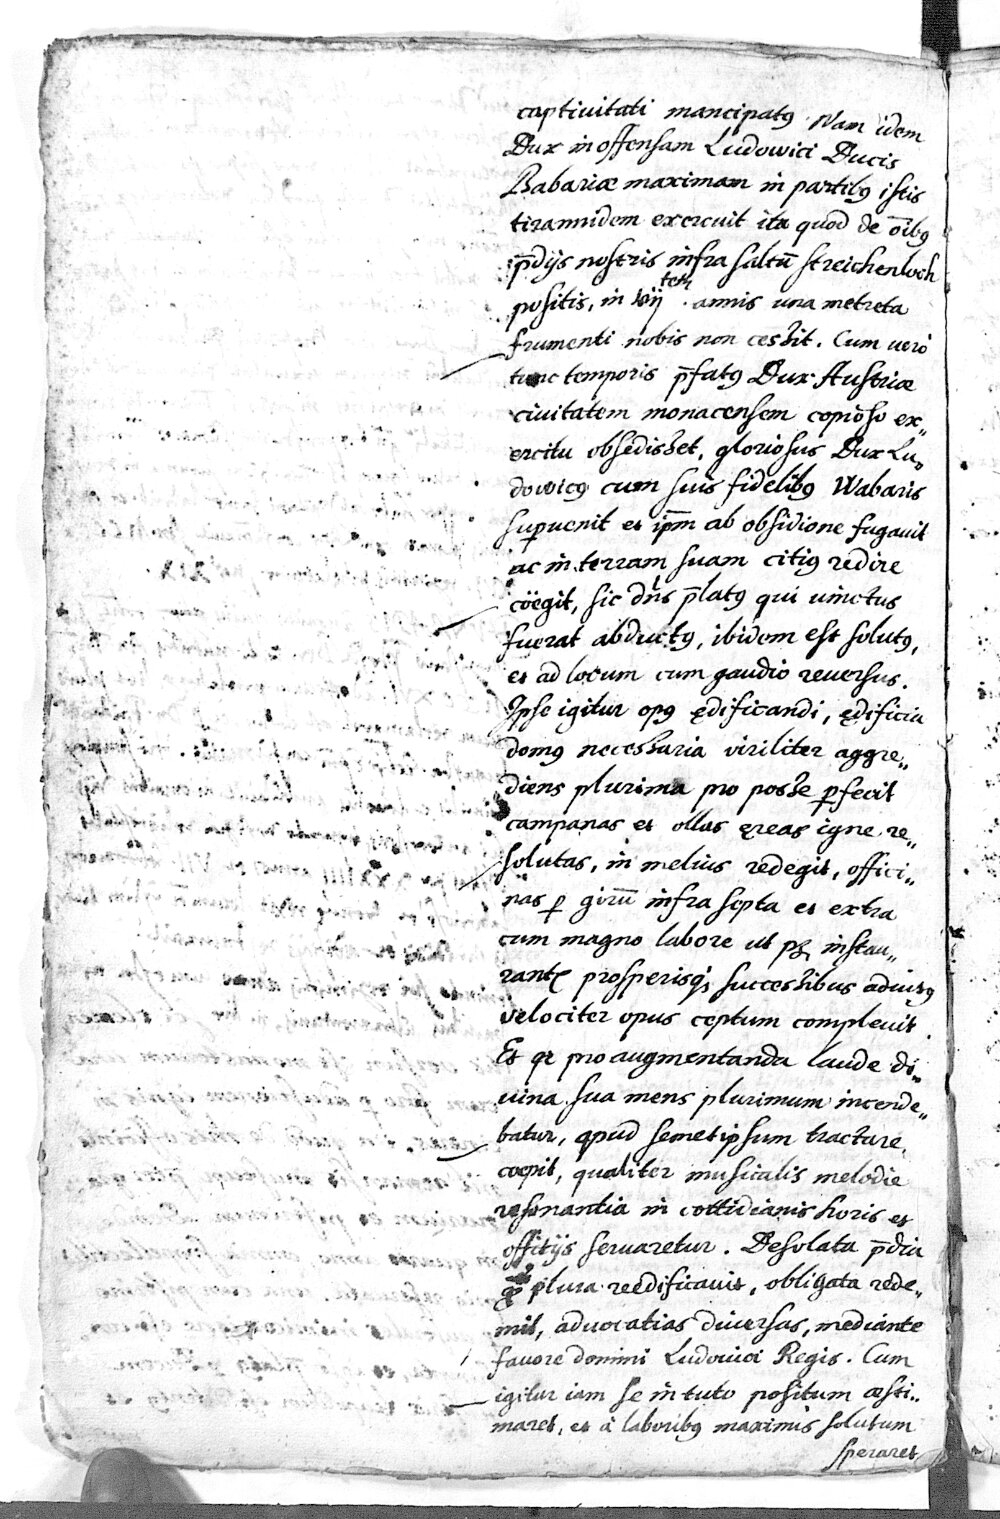 captiuitati mancipatꝰ. Nam idem
Dux in offensam Ludowici Ducis
Babariæ maximam in partibꝰ istis
tirannidem exercuit ita quod de o̅ibꝰ
p̅dijs nostris infra saltu̅ streichenloch
positis, in vij tem annis una metreta
frumenti nobis non cessit. Cum uero
tunc temporis p̅fatꝰ Dux Austriæ
ciuitatem monacensem copioso ex„
ercitu obsedisset, gloriosus Dux Lu„
dowicꝰ cum suis fidelibꝰ Wabaris
suꝑuenit et ip̅m ab obsidione fugauit
ac in terram suam citiꝰ redire
cöegit, sic dn̅s p̅latꝰ qui uinctus
fuerat abductꝰ, ibidem est solutꝰ,
et ad locum cum gaudio reuersus.
Ipse igitur opꝰ ędificandi, ędificia
domꝰ necessaria viriliter aggre„
diens plurima pro posse ꝑfecit
campanas et ollas ęreas igne re„
solutas, in melius redegit, offici„
nas ꝑ giru̅ infra septa et extra
cum magno labore ut pꝫ instau„
rant prosperisqꝫ successibus adiutꝰ
velociter opus ceptum compleuit.
Et qꝛ pro augmentanda laude di„
uina sua mens plurimum incende„
batur, apud semetipsum tractare
coepit, qualiter musicalis melodie
resonantia in cottidianis horis et
offitijs seruaretur. Desolata p̅dia
plura reedificauit, obligata rede„
mit, aduocatias diuersas, mediante
fauore domini Ludouici Regis. Cum
igitur iam se in tuto positum æsti„
maret, et à laboribꝰ maximis solutum
speraret